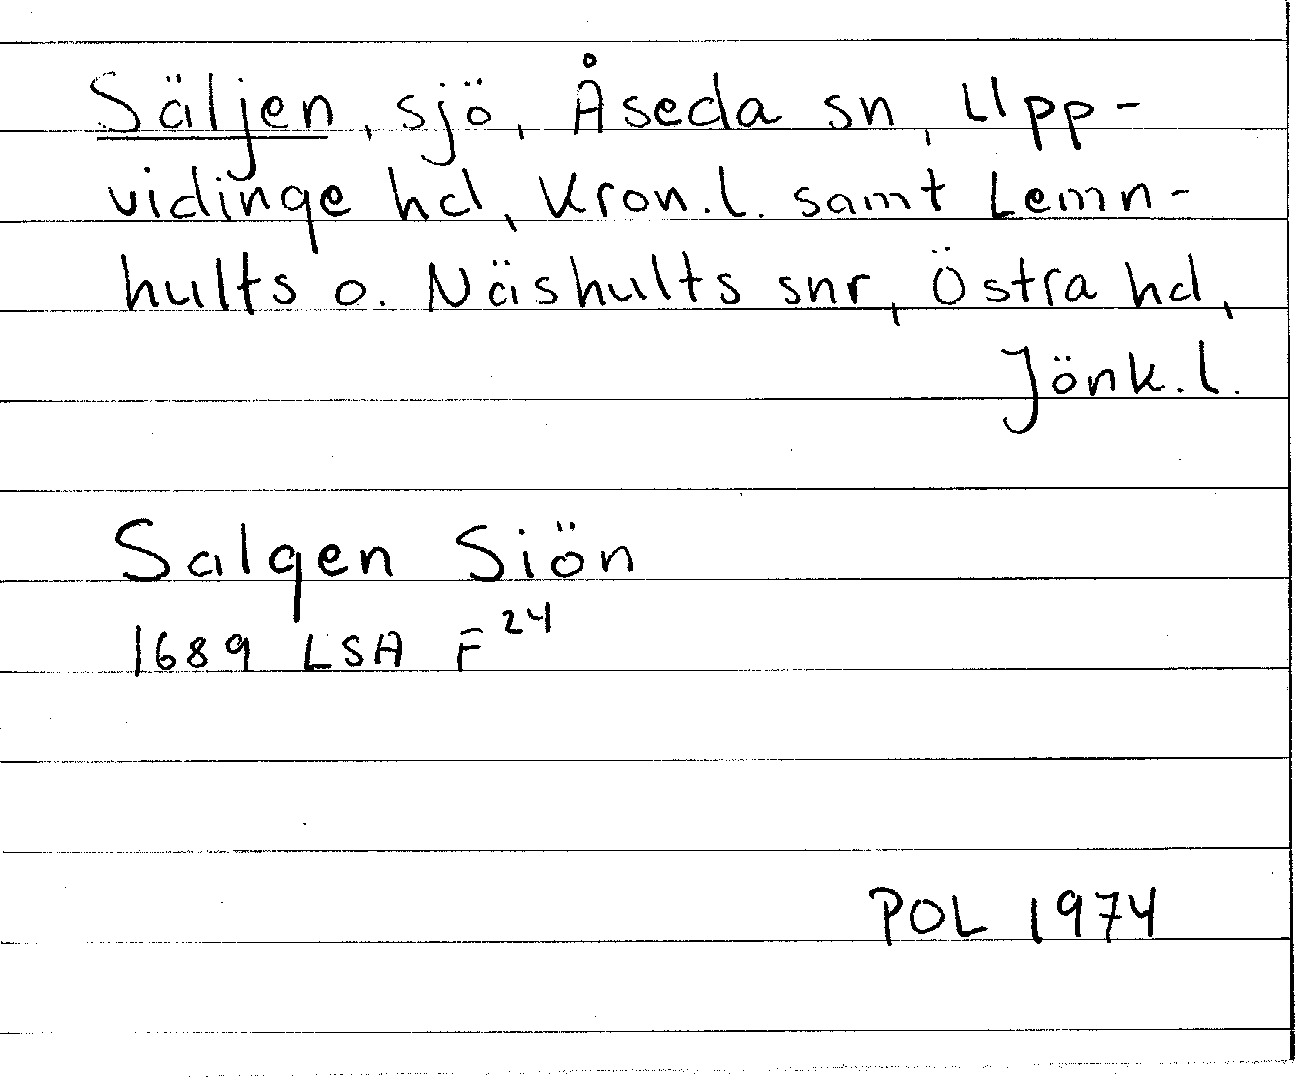 Säljen, sjö, Åseda sn, Upp-
vidinge hd, Kron.l. samt Lemn-
hults o. Näshults snr, Östra hd,
Jönk.l.
Salgen Siön
1689 LSA F 24
POL 1974